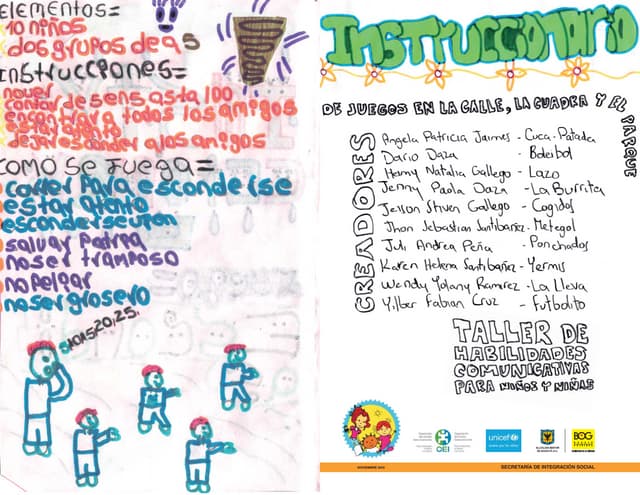 ELEMENTOS=
10 niños
dos grupos de a 5
INstrucciones=
no ver
contar de sens asta 100
encontrar a todos los amigos
estar atento
dejar esconder a los amigos
COMO Se Juega=
correr Para esconderse
estar atento
esconderse
salvar Patria
no ser tramposo
no Peliar
no ser grosero
10 15 20, 25.
INSTRUCCIONARIO
DE JUEGOS EN LA CALLE, LA CUADRA Y EL PARQUE
CREADORES
Angela Patricia Jaimes - Cuca-Patada
Dario Daza - Boleibol
Hamy Natalia Gallego - Lazo
Jenny Paola Daza - La Burrita
Jesson Stiven Gallego - Cogidos
Jhon Sebastian Santibañez - Metegol
Juli Andrea Peña - Ponchados
Karen Helena Santibañez - Yermis
Wendy Yolany Ramirez - La Lleva
Yilber Fabian Cruz - Futbolito
TALLER DE
HABILIDADES
COMUNICATIVAS
PARA NIÑOS Y NIÑAS
OEI
unicef
BOG
SECRETARÍA DE INTEGRACIÓN SOCIAL